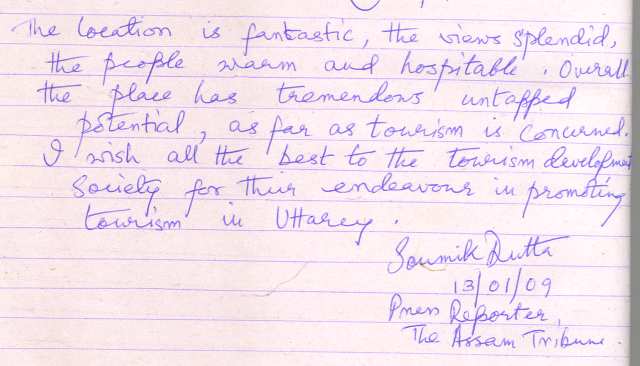 The location is fantastic, the views splendid,
the people warm and hospitable. Overall
the place has tremendous untapped
potential, as far as tourism is concerned.
I wish all the best to the tourism development
Society for their endeavour in promoting
tourism in Uttarey.
Soumik Dutta
13/01/09
Press Reporter,
The Assam Tribune.